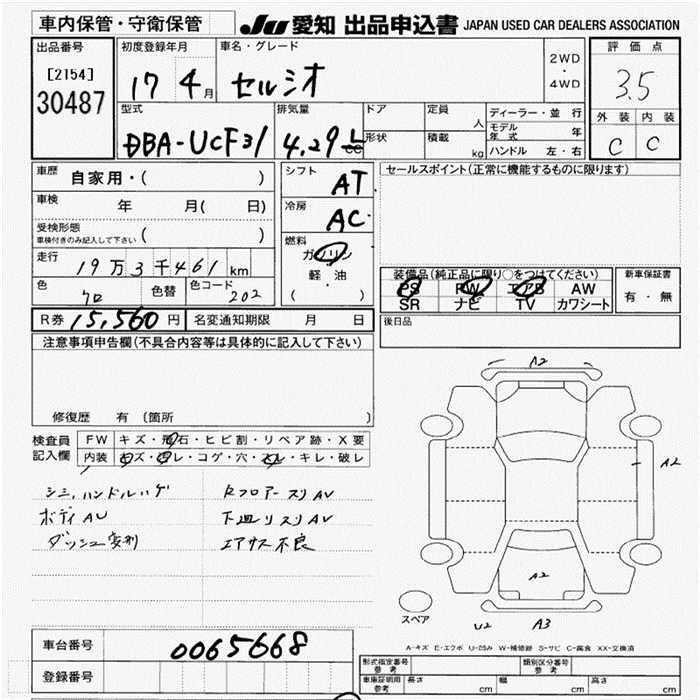 車内保管・守衛保管
JU 愛知 出品申込書 JAPAN USED CAR DEALERS ASSOCIATION
出品番号
[2154]
30487
初度登録年月
17 4 月
車名・グレード
セルシオ
2WD
・
4WD
評価点
3.5
外装 内装
C C
型式
DBA-UCF31
排気量
4.29 L
cc
ドア
形状
定員
人
積載
kg
ディーラー・並行
モデル年式 年
ハンドル 左・右
車歴
自家用・( )
車検
年 月( 日)
受検形態
車検付きのみ記入して下さい ( )
走行
19万3千461 km
色
クロ
色替
色コード
202
シフト
AT
冷房
AC
燃料
ガソリン
軽・油
( )
セールスポイント(正常に機能するものに限ります)
装備品(純正品に限り○をつけてください)
PS PW エアB AW
SR ナビ TV カワシート
新車保証書
有・無
R券 15,560 円
名変通知期限 月 日
後日品
注意事項申告欄(不具合内容等は具体的に記入して下さい)
修復歴 有 (箇所 )
検査員
記入欄
FW キズ・飛石・ヒビ割・リペア跡・X要
内装 キズ・ヨゴレ・コゲ・穴・スレ・キレ・破レ
シミ,ハンドルハゲ
ボディAU
ダッシュ変形
Rフロアースリ AV
下廻リスリ AV
エアサス不良
A2
A2
A2
U2 A3
スペア
A-キズ E-エクボ U-凹み W-補修跡 S-サビ C-腐食 XX-交換済
車台番号
0065668
登録番号
形式指定番号
参考
類別区分番号
参考
車庫証明用
参考
長さ cm
幅 cm
高さ cm